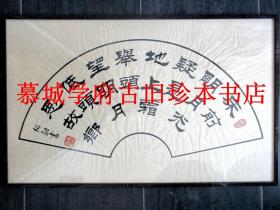 牀前
明月光
疑是
地上霜
舉頭
望明月
低頭
思故鄉
慕城学府古旧珍本书店